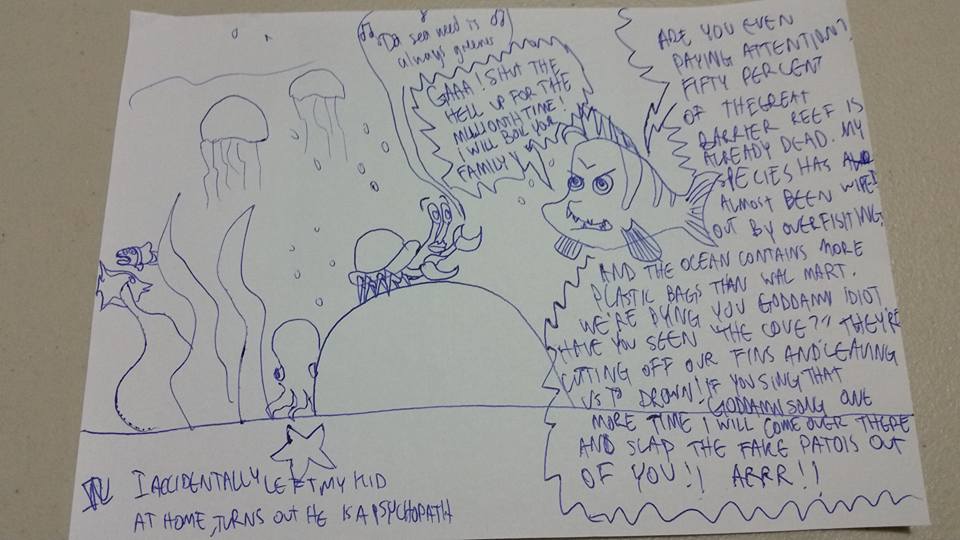 Da sea weed is
always greener
GAAA! SHUT THE
HELL UP FOR THE
MILLIONTH TIME!
I WILL BOIL YOUR
FAMILY!
ARE YOU EVEN
PAYING ATTENTION?
FIFTY PERCENT
OF THE GREAT
BARRIER REEF IS
ALREADY DEAD. MY
SPECIES HAS
ALMOST BEEN WIPED
OUT BY OVERFISHING,
AND THE OCEAN CONTAINS MORE
PLASTIC BAGS THAN WAL MART.
WE'RE DYING YOU GODDAMN IDIOT
HAVE YOU SEEN "THE COVE?" THEY'RE
CUTING OFF OUR FINS AND LEAVING
US TO DROWN! IF YOU SING THAT
GODDAMN SONG ONE
MORE TIME I WILL COME OVER THERE
AND SLAP THE FAKE PATOIS OUT
OF YOU!! ARRR!!
I ACCIDENTALLY LEFT MY KID
AT HOME, TURNS OUT HE IS A PSYCHOPATH